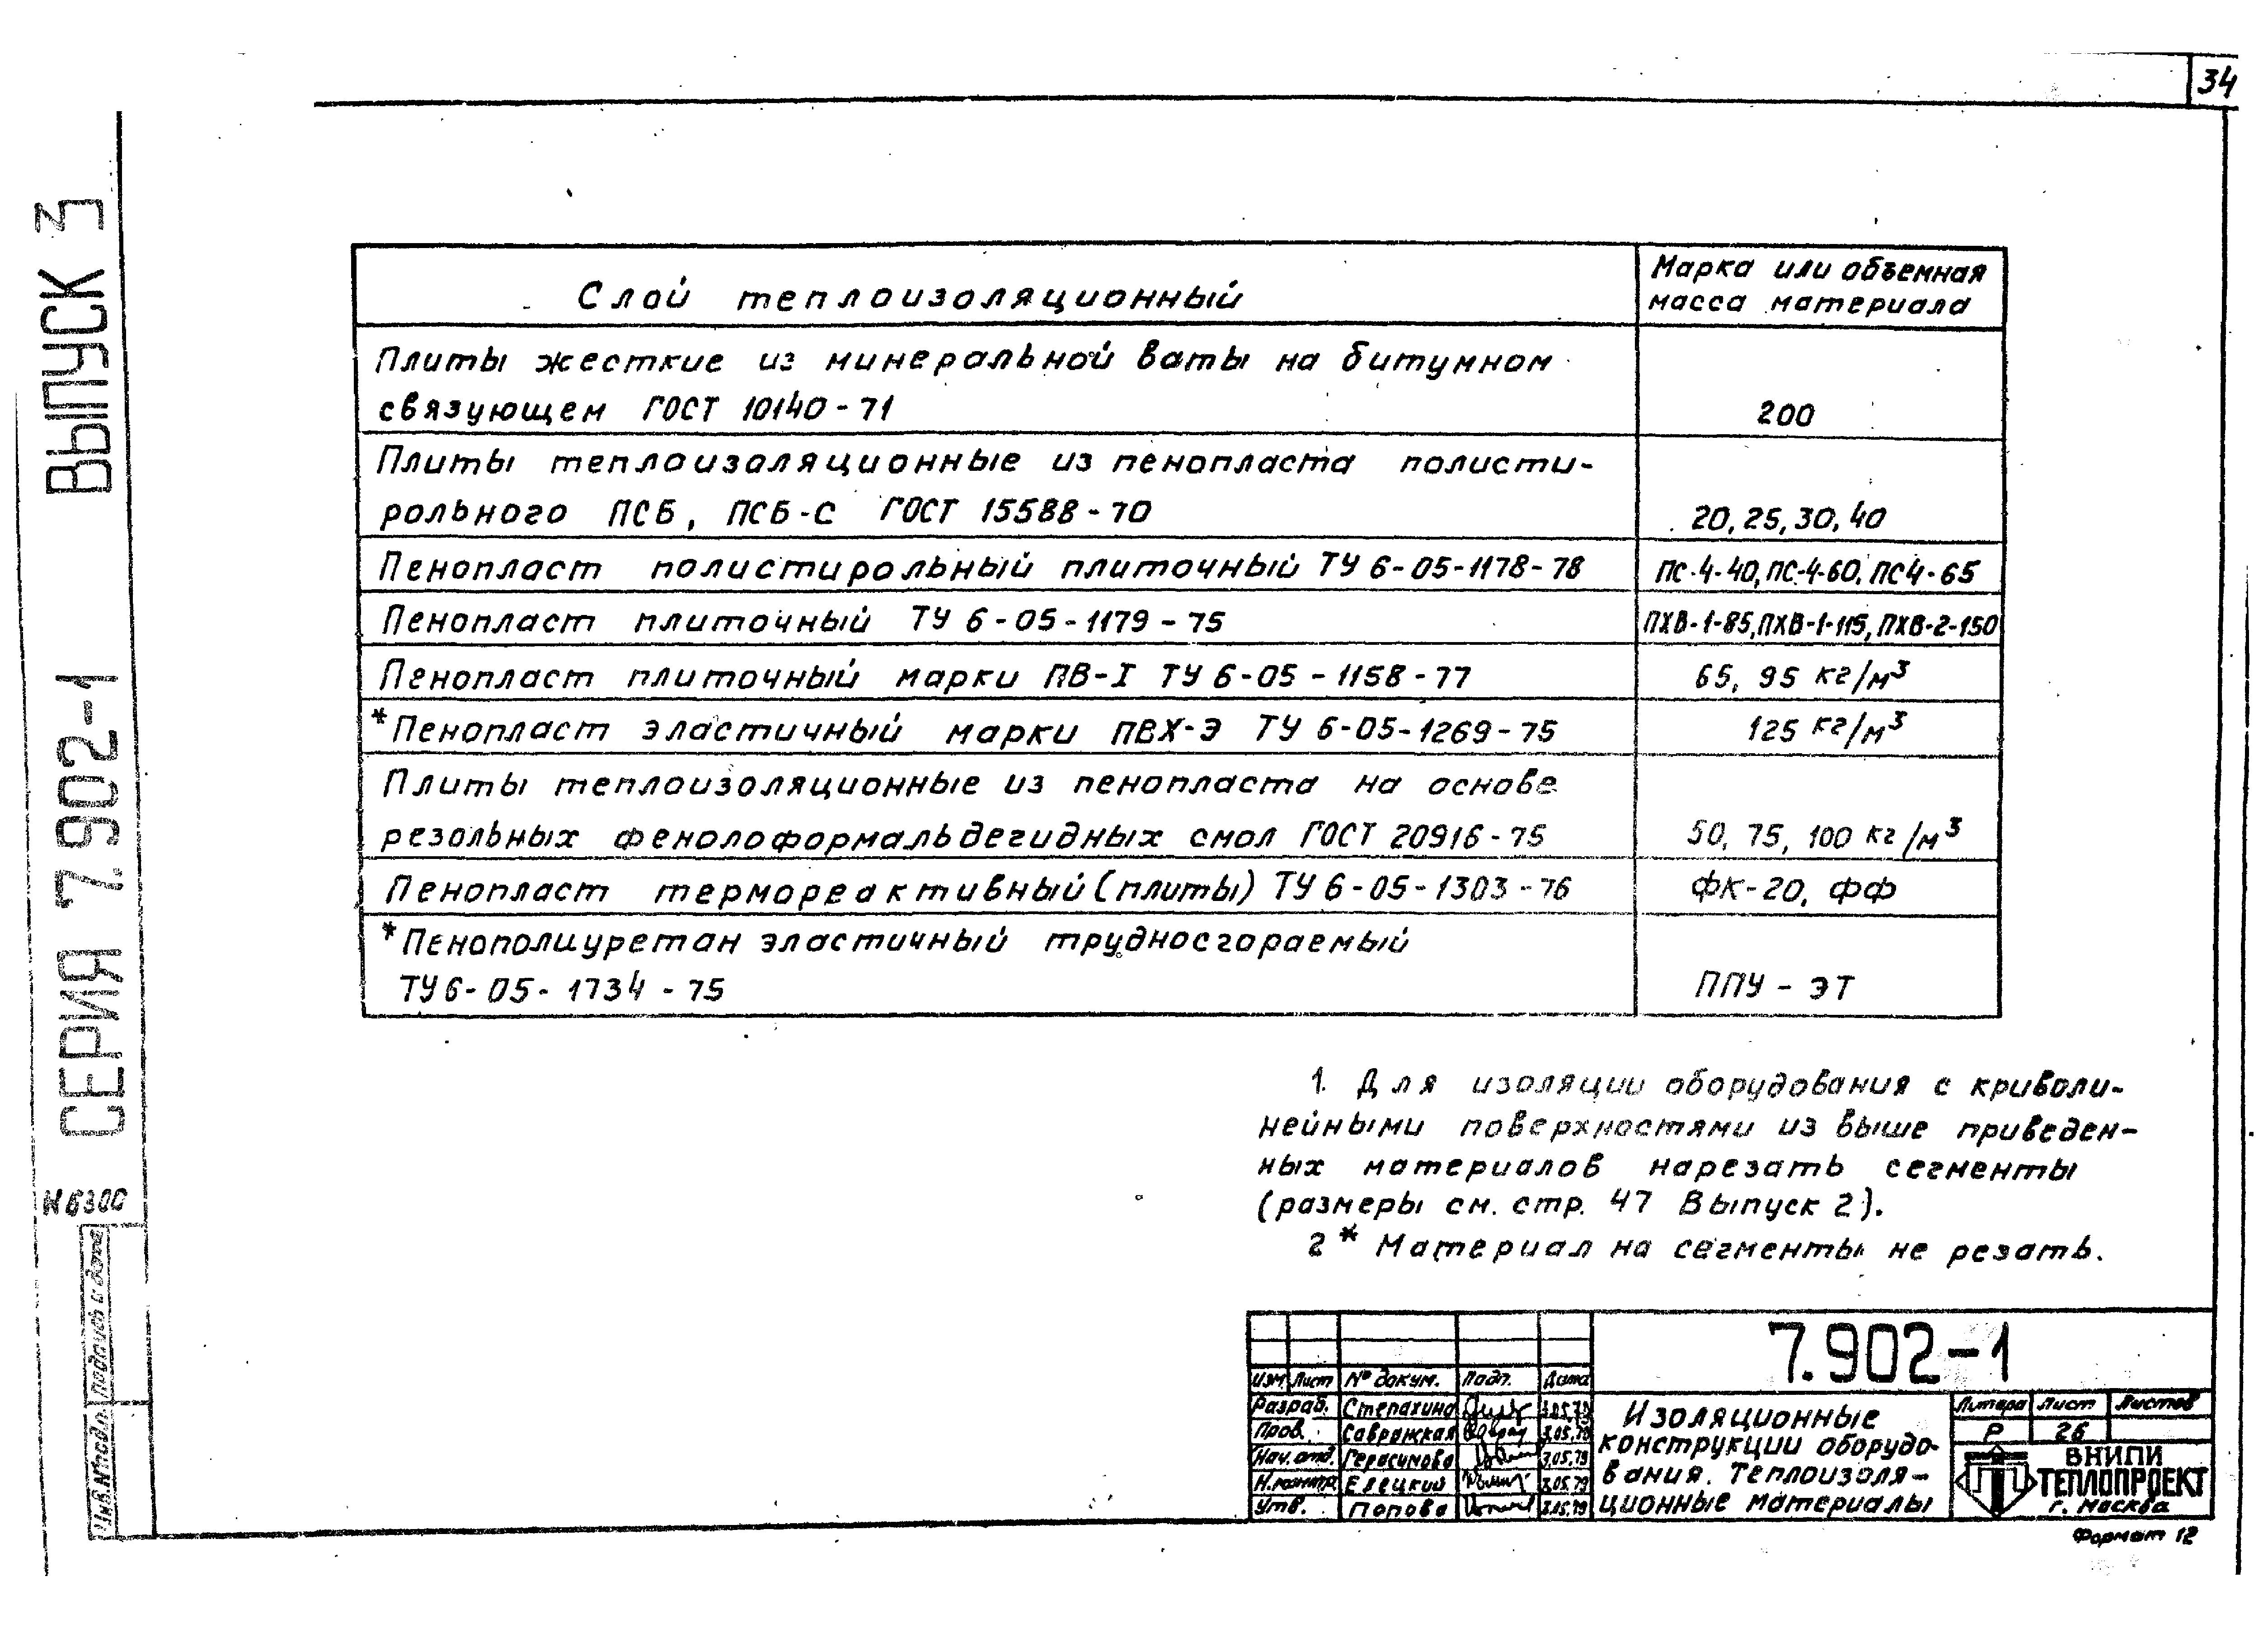 34
СЕРИЯ 7.902-1 ВЫПУСК 3
Слой теплоизоляционный
Марка или объемная
масса материала
Плиты жесткие из минеральной ваты на битумном
связующем ГОСТ 10140-71
200
Плиты теплоизоляционные из пенопласта полисти-
рольного ПСБ, ПСБ-С ГОСТ 15588-70
20, 25, 30, 40
Пенопласт полистирольный плиточный ТУ 6-05-1178-78
ПС-4-40, ПС-4-60, ПС4-65
Пенопласт плиточный ТУ 6-05-1179-75
ПХВ-1-85, ПХВ-1-115, ПХВ-2-150
Пенопласт плиточный марки ПВ-I ТУ 6-05-1158-77
65, 95 кг/м³
*Пенопласт эластичный марки ПВХ-Э ТУ 6-05-1269-75
125 кг/м³
Плиты теплоизоляционные из пенопласта на основе
резольных фенолоформальдегидных смол ГОСТ 20916-75
50, 75, 100 кг/м³
Пенопласт термореактивный (плиты) ТУ 6-05-1303-76
ФК-20, ФФ
*Пенополиуретан эластичный трудносгораемый
ТУ 6-05-1734-75
ППУ-ЭТ
1. Для изоляции оборудования с криволи-
нейными поверхностями из выше приведен-
ных материалов нарезать сегменты
(размеры см. стр. 47 Выпуск 2).
2* Материал на сегменты не резать.
Инв.№подл. Подпись и дата
7.902-1
Изм Лист № докум. Подп. Дата
Разраб. Степахина 3.05.79
Пров. Савражкая 3.05.79
Нач.отд. Герасимова 3.05.79
Н.контр. Елецкий 3.05.79
Утв. Попова 3.05.79
Изоляционные
конструкции оборудо-
вания. Теплоизоля-
ционные материалы
Литера Лист Листов
Р 26
ВНИПИ
ТЕПЛОПРОЕКТ
г. Москва
Формат 12